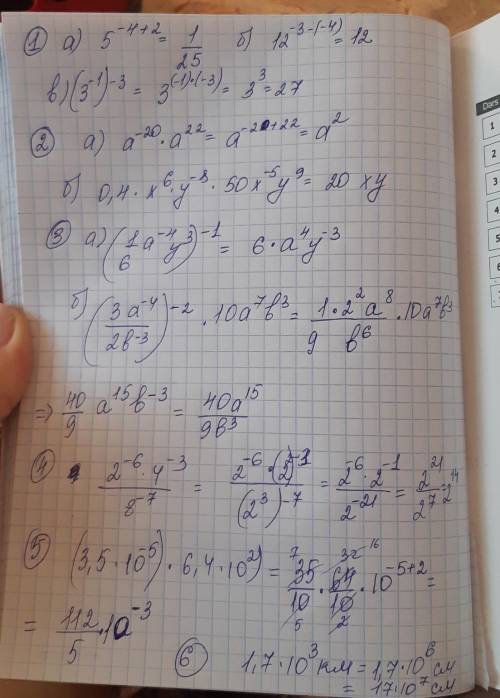 ① а) 5^{-4+2} = 1/25 б) 12^{-3-(-4)} = 12
в) (3^{-1})^{-3} = 3^{(-1)·(-3)} = 3^3 = 27
② а) a^{-20} · a^{22} = a^{-20+22} = a^2
б) 0,4 · x^6 · y^{-8} · 50x^{-5}y^9 = 20 xy
③ а) (1/6 a^{-4}y^3)^{-1} = 6 · a^4 y^{-3}
б) (3a^{-4}/2b^{-3})^{-2} · 10a^7b^3 = 1·2^2a^8/9 b^6 · 10a^7b^3
⇒ 40/9 a^{15}b^{-3} = 40a^{15}/9b^3
④ 2^{-6} · 4^{-3}/8^{-7} = 2^{-6} · (2)^{-1}/(2^3)^{-7} = 2^{-6} · 2^{-1}/2^{-21} = 2^{21}/2^7 = 2^{14}
⑤ (3,5 · 10^{-5}) · 6,4 · 10^2) = 35/10 · 64/10 · 10^{-5+2} =
7 32 16
5 2
= 112/5 · 10^{-3}
⑥ 1,7 · 10^3 км = 1,7 · 10^6 см
= 17 · 10^7 см
Dars
1
2
3
4
5
6